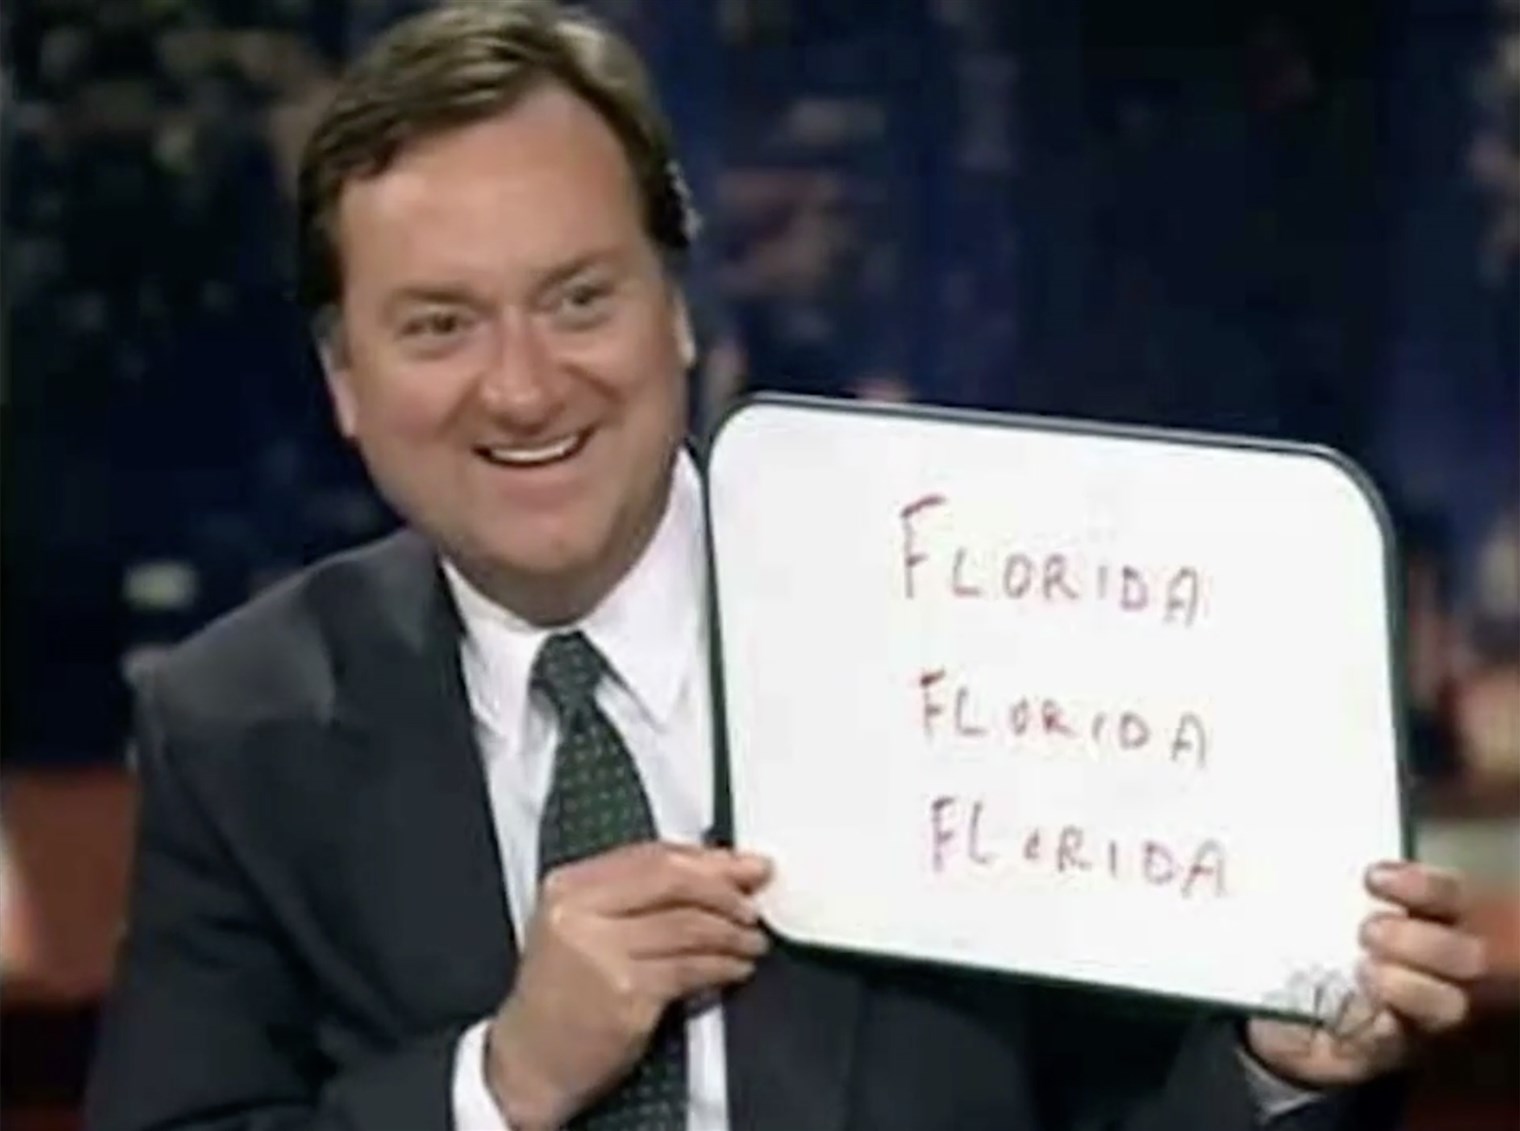 FLORIDA
FLORIDA
FLORIDA